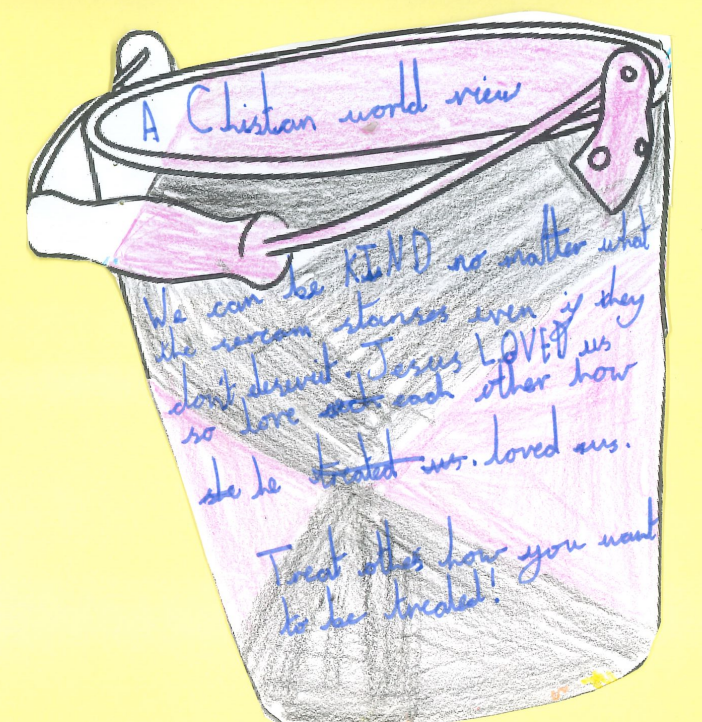 A Chistan world view
We can be KIND no matter what
the sercam stanses even if they
don't deserveit. Jesus LOVED us
so love each other how
he treated us. loved us.
Treat othes how you want
to be treated!